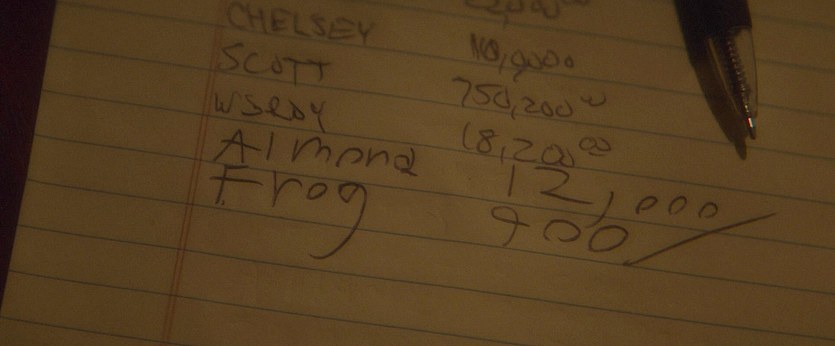 CHELSEY
SCOTT 110,000
WSLDY 750,200
Almond 18,200
Frog 12,000
900